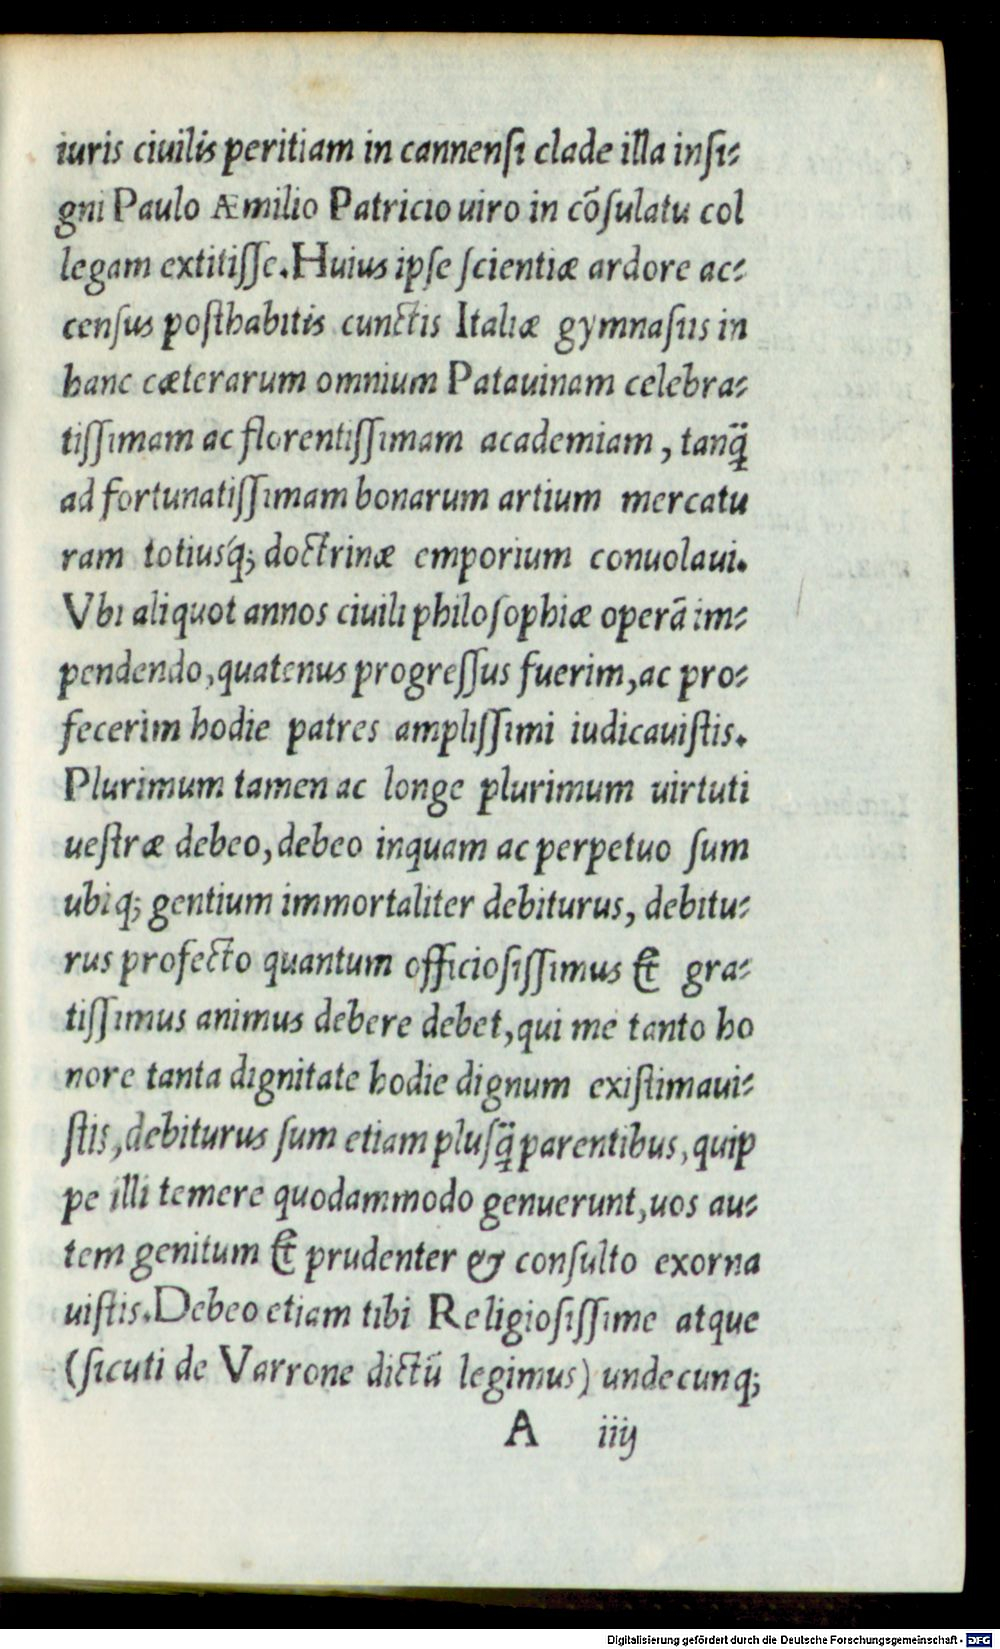 iuris ciuilis peritiam in cannensi clade illa insi-
gni Paulo Æmilio Patricio uiro in cōsulatu col
legam extitisse. Huius ipse scientiæ ardore ac-
census posthabitis cunctis Italiæ gymnasiis in
hanc cæterarum omnium Patauinam celebra-
tissimam ac florentissimam academiam, tanq̃
ad fortunatissimam bonarum artium mercatu
ram totiusq́; doctrinæ emporium conuolaui.
Vbi aliquot annos ciuili philosophiæ operā im-
pendendo, quatenus progressus fuerim, ac pro-
fecerim hodie patres amplissimi iudicauistis.
Plurimum tamen ac longe plurimum uirtuti
uestræ debeo, debeo inquam ac perpetuo sum
ubiq; gentium immortaliter debiturus, debitu-
rus profecto quantum officiosissimus & gra-
tissimus animus debere debet, qui me tanto ho
nore tanta dignitate hodie dignum existimaui-
stis, debiturus sum etiam plusq̃ parentibus, quip
pe illi temere quodammodo genuerunt, uos au-
tem genitum & prudenter & consulto exorna
uistis. Debeo etiam tibi Religiosissime atque
(sicuti de Varrone dictū legimus) undecunq;
A iiij
Digitalisierung gefördert durch die Deutsche Forschungsgemeinschaft - DFG